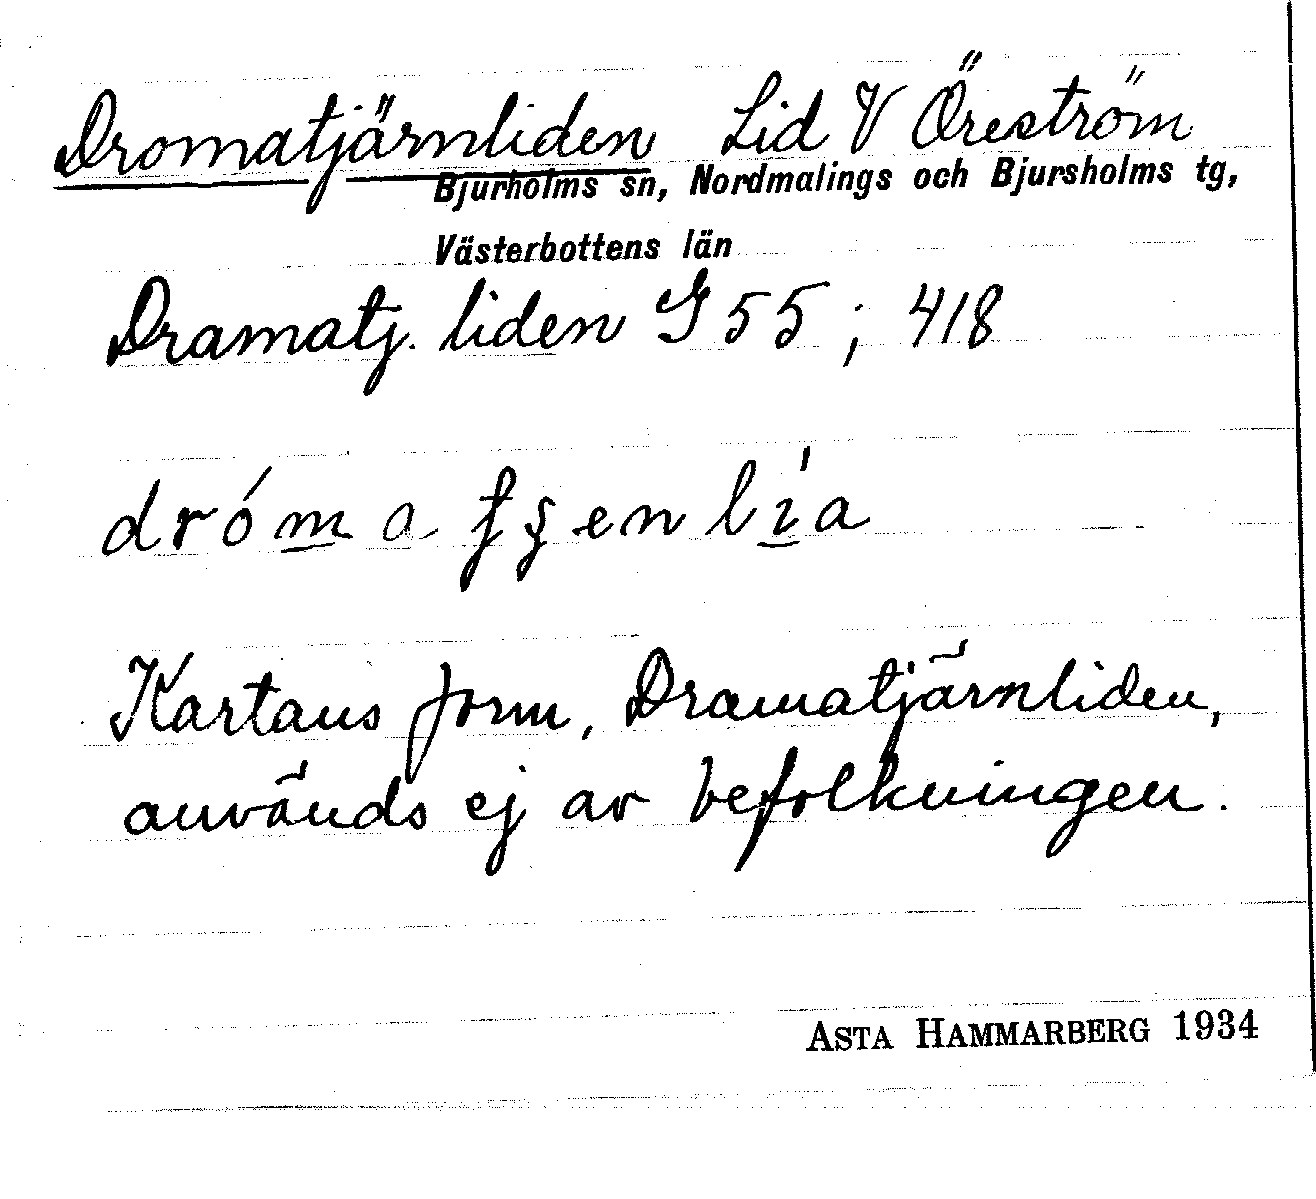 Dromatjärnliden Lid V Öreström
Bjurholms sn, Nordmalings och Bjursholms tg,
Västerbottens län
Dramatj. liden G 55 ; 418
Kartans form, Dramatjärnliden,
används ej av befolkningen.
ASTA HAMMARBERG 1934